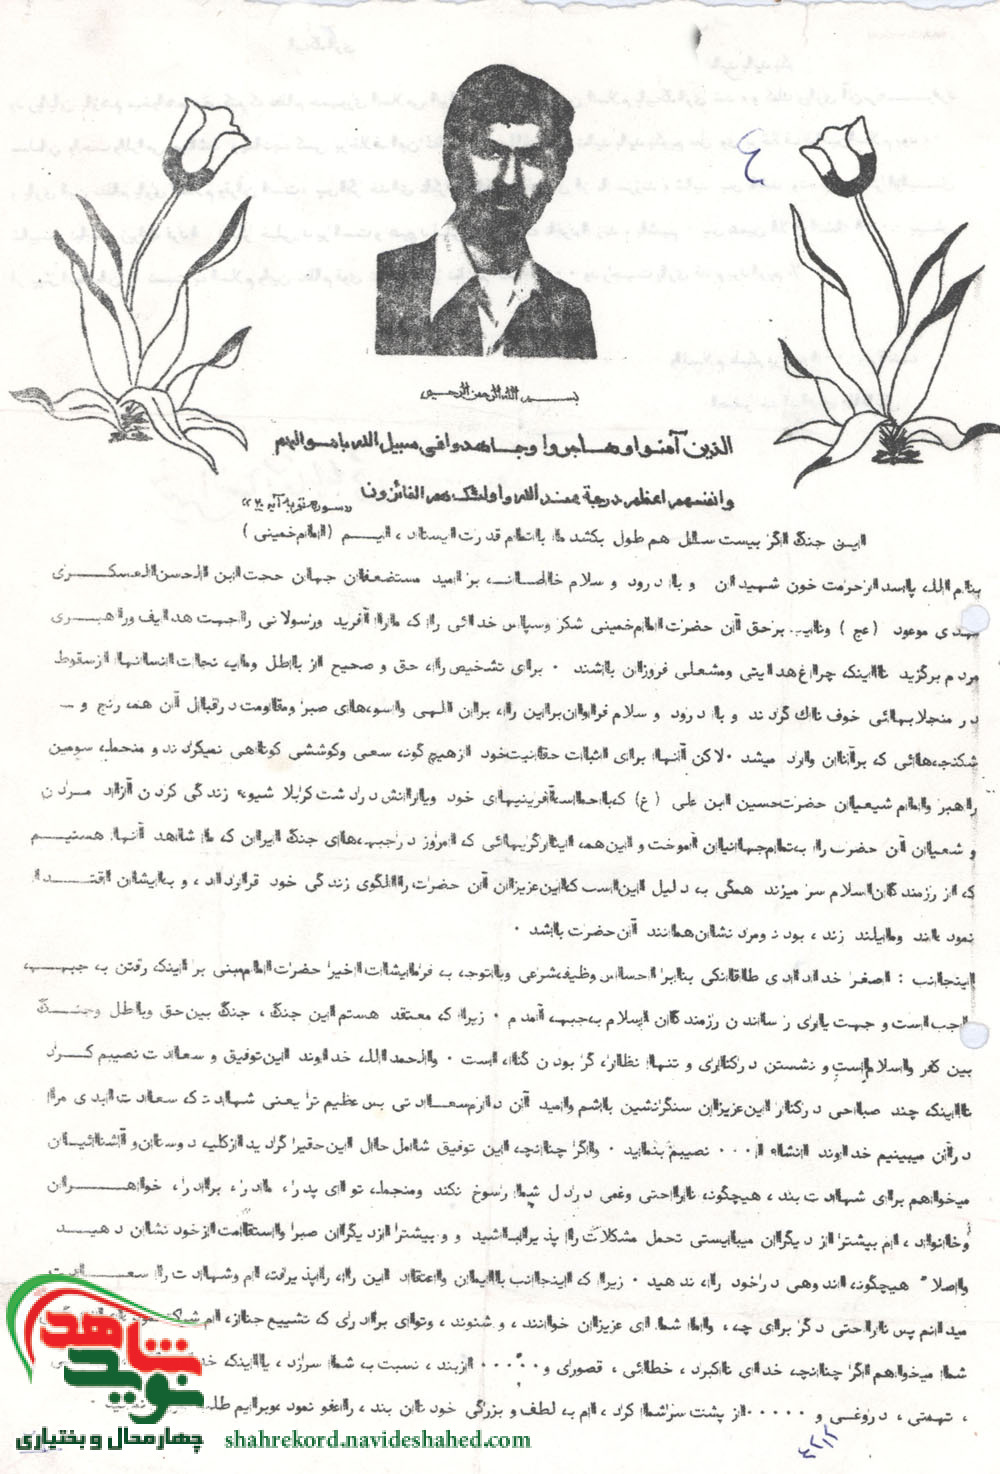 بسم الله الرحمن الرحیم
الذین آمنوا و هاجروا و جاهدوا فی سبیل الله باموالهم
و انفسهم اعظم درجة عند الله و اولئک هم الفائزون «سوره توبه آیه ۲۰»
این جنگ اگر بیست سال هم طول بکشد ما با تمام قدرت ایستاده ایم (امام خمینی)
بنام الله پاسدار حرمت خون شهیدان و با درود و سلام خالصانه بر امید مستضعفان جهان حجت ابن الحسن العسکری
مهدی موعود (عج) و نایب برحق آن حضرت امام خمینی شکر و سپاس خدائی را که ما را آفرید و رسولانی را جهت هدایت و راهبری
مردم برگزید تا اینکه چراغ هدایتی و مشعلی فروزان باشند ۰ برای تشخیص راه حق و صحیح از باطل و مایه نجات انسانها از سقوط
در منجلابهائی خوفناک گردند و با درود و سلام فراوان بر این راهبران الهی و اسوه‌های صبر و مقاومت در قبال آن همه رنج و
شکنجه‌هائی که بر آنان وارد میشد ۰ لاکن آنها برای اثبات حقانیت خود از هیچ گونه سعی و کوششی کوتاهی نمیکردند و منجمله سومین
راهبر و امام شیعیان حضرت حسین ابن علی (ع) که با حماسه آفرینیهای خود و یارانش در دشت کربلا شیوه زندگی کردن آزاد مردن
و شعیان آن حضرت را به تمام جهانیان آموخت و این همه ایثارگریهائی که امروز در جبهه‌های جنگ ایران که ما شاهد آنها هستیم
که از رزمندگان اسلام سر میزند همگی به دلیل این است که این عزیزان آن حضرت را الگوی زندگی خود قرار داده و به ایشان اقتدا
نموده‌اند و مایلند زنده بودن و مردنشان همانند آن حضرت باشد ۰
اینجانب : اصغر خدادادی طاقانکی بنابر احساس وظیفه شرعی و با توجه به فرمایشات اخیر حضرت امام مبنی بر اینکه رفتن به جبهه
واجب است و جهت یاری رساندن رزمندگان اسلام به جبهه آمدم ۰ زیرا که معتقد هستم این جنگ ، جنگ بین حق و باطل و جنگ
بین کفر و اسلام است و نشستن در کناری و تنها نظاره گر بودن گناه است ۰ و الحمد الله خداوند این توفیق و سعادت نصیبم کرد
تا اینکه چند صباحی در کنار این عزیزان سنگرنشین باشم و امید آن دارم سعادتی بس عظیم تر یعنی شهادت که سعادت ابدی مرا
در آن میبینیم خداوند انشاء ا۰۰۰ نصیبم بنماید ۰ و اگر چنانچه این توفیق شامل حال این حقیر گردید از کلیه دوستان و آشنائیان
میخواهم برای شهادت بنده هیچگونه ناراحتی و غمی در دل شما رسوخ نکند و منجمله تو ای پدر ، مادر ، برادر ، خواهران
و خانواده ام بیشتر از دیگران میبایستی تحمل مشکلات را پذیرا باشید و و بیشتر از دیگران صبر و استقامت از خود نشان دهید
و اصلا" هیچگونه اندوهی در خود راه ندهید ۰ زیرا که اینجانب با ایمان و اعتقاد این راه را پذیرفته ام و شهادت را سعادت
میدانم پس ناراحتی دگر برای چه ، و اما شما ای عزیزان خواننده و شنونده و تو ای برادری که تشییع جنازه ام شرکت
شما میخواهم اگر چنانچه خدای ناکرده خطائی ، قصوری و ۰۰۰۰۰ از بنده نسبت به شما سرزده یا اینکه
، تهمتی ، دروغی و ۰۰۰۰۰ از پشت سر شما کرده ام به لطف و بزرگی خودتان بنده را عفو نموده و برایم
نوید شاهد
چهارمحال و بختیاری
shahrekord.navideshahed.com